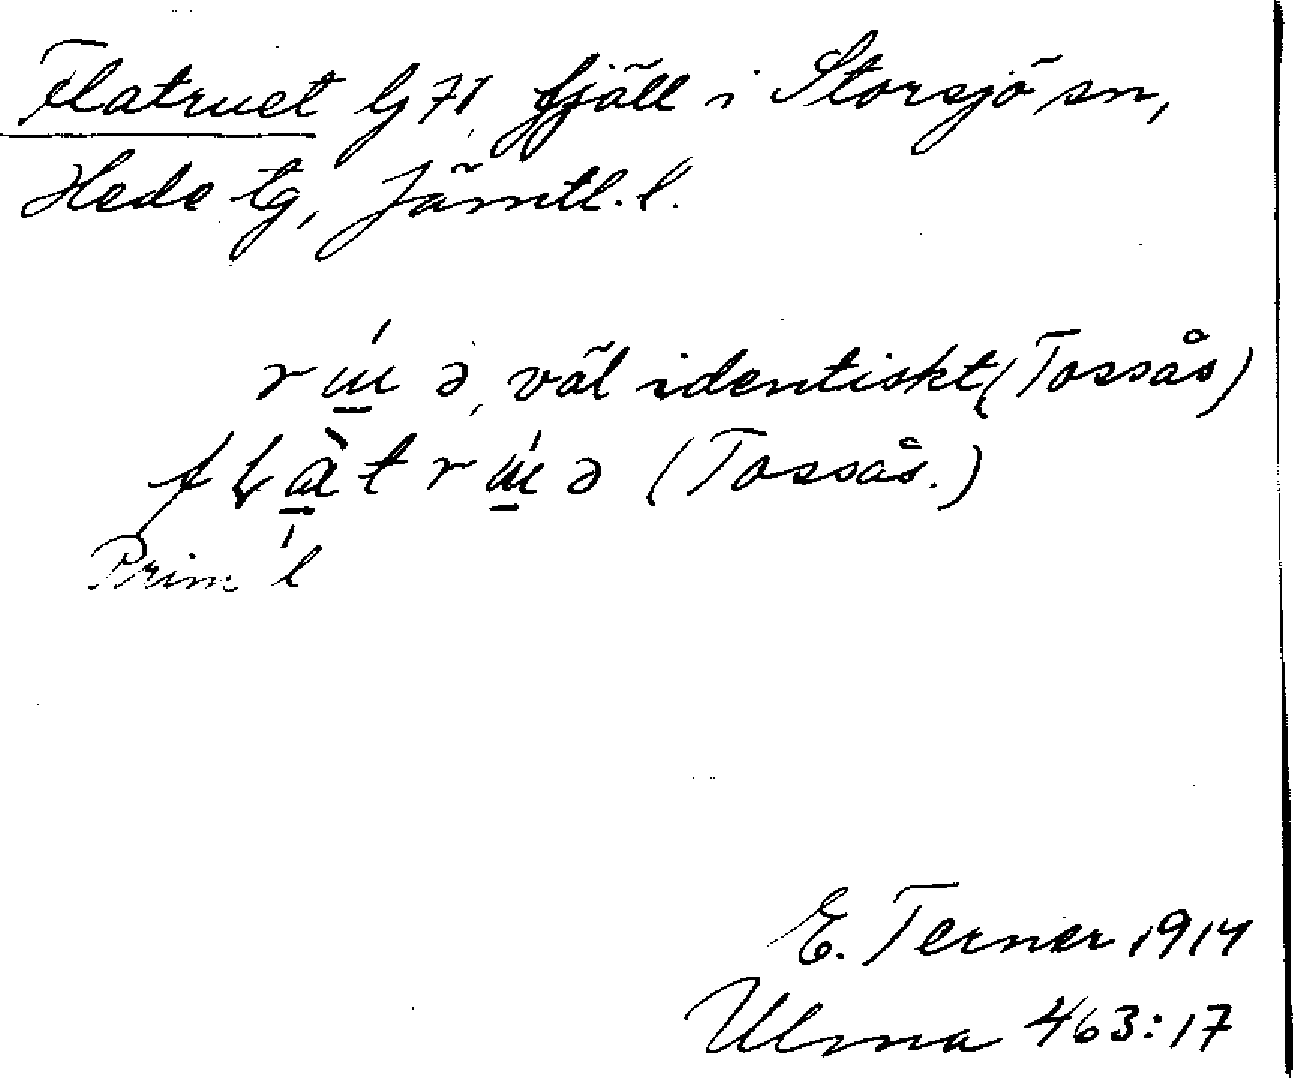 Flatruet Gj 71, fjäll i Storsjö sn,
Hede tg, Jämtl. l.
r ɯ́ ə, väl identiskt (Tossås)
f ɽ ɑ̀ t r ɯ́ ə (Tossås.)
Prim l
E. Terner 1914
Ulma 463:17